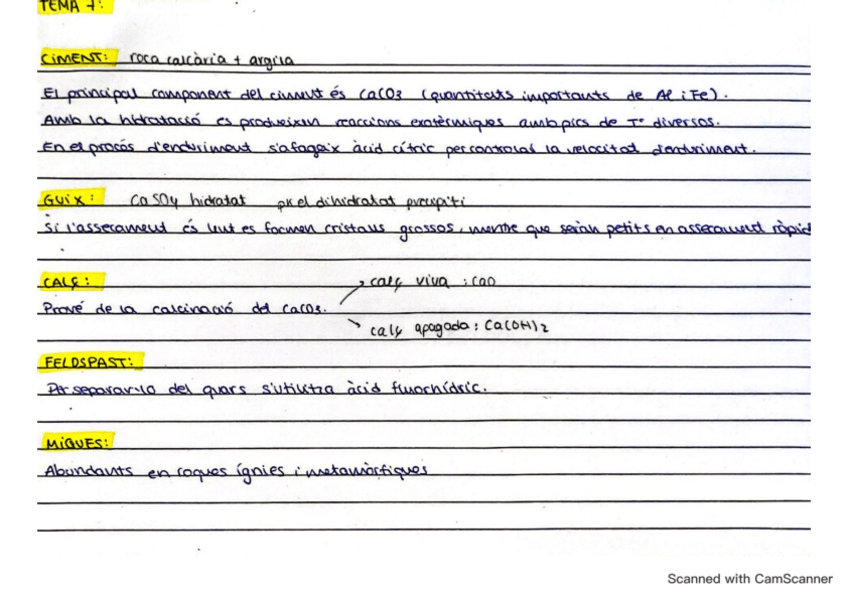 TEMA 7:
CIMENT: roca calcària + argila
El principal component del ciment és CaCO3 (quantitats importants de Al i Fe).
Amb la hidratació es produeixen reaccions exotèrmiques amb pics de Tª diversos.
En el procés d'enduriment s'afageix àcid cítric per controlar la velocitat d'enduriment.
GUIX: CaSO4 hidratat pq el dihidratat precipiti
Si l'assecament és lent es formen cristalls grossos, mentre que seràn petits en assecament ràpid
.
CALÇ: calç viva : CaO
Prové de la calcinació del CaCO3.
calç apagada : Ca(OH)2
FELDSPAST:
Per separar-lo del quars s'utilitza àcid fluorhídric.
MIQUES:
Abundants en roques ígnies i metamòrfiques
Scanned with CamScanner